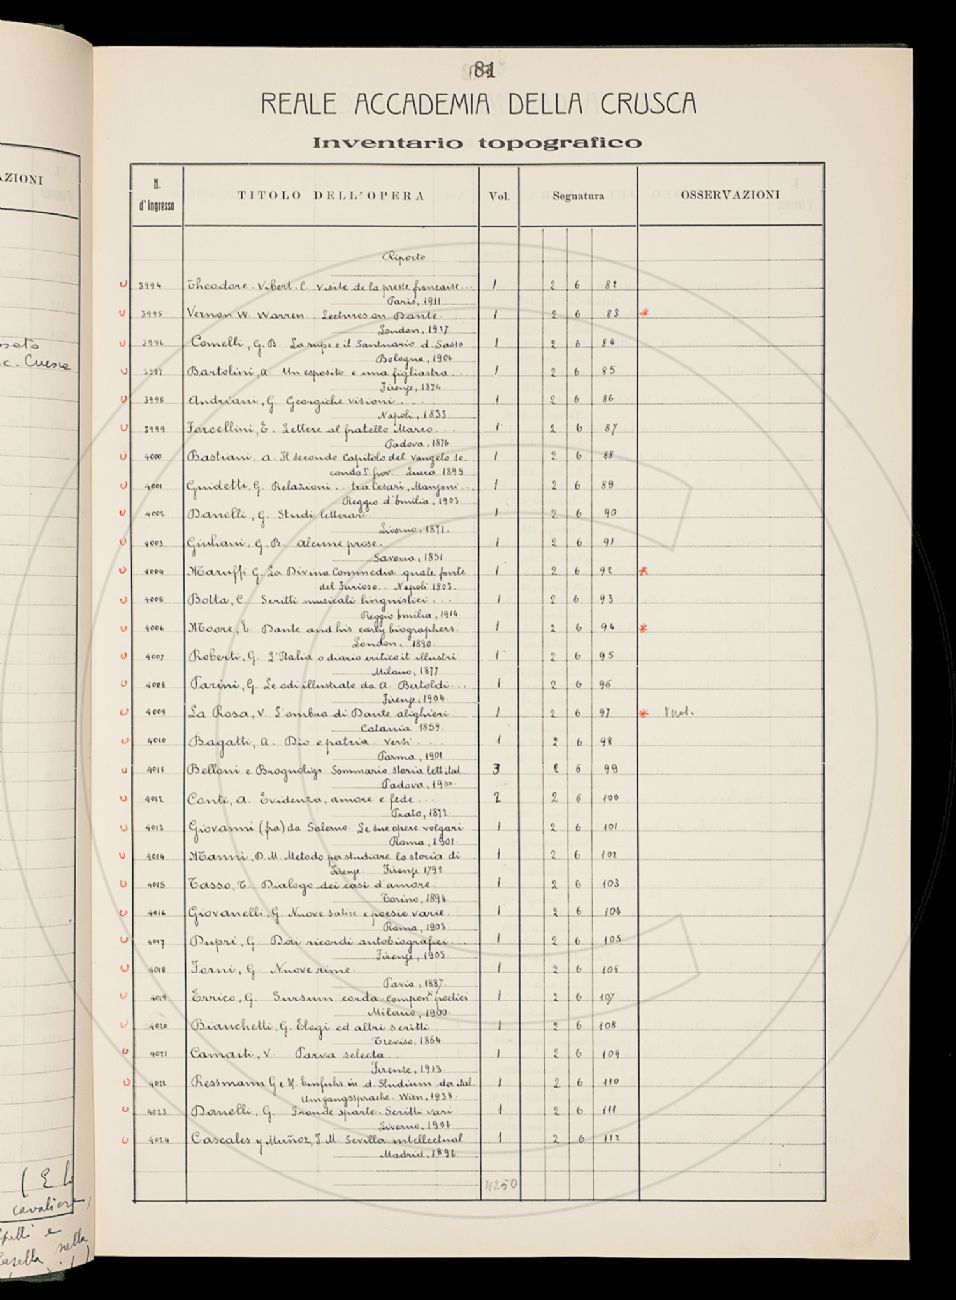 81
REALE ACCADEMIA DELLA CRUSCA
Inventario topografico
N. d'Ingresso TITOLO DELL'OPERA Vol. Segnatura OSSERVAZIONI
Riporto
3994 Theodore-Vibert. C. Visite de la presse francaise... 1 2 6 82
Paris, 1911
3995 Vernon W. Warren. Lectures on Dante. 1 2 6 83 *
London, 1917
3996 Comelli, G. B. La rupe e il Santuario d. Sasso 1 2 6 84
Bologna, 1904
3997 Bartolini, A. Un esposito e una figliastra... 1 2 6 85
Firenze, 1874
3998 Andriani, G. Georgiche visioni... 1 2 6 86
Napoli, 1833
3999 Forcellini, E. Lettere al fratello Marco... 1 2 6 87
Padova, 1876
4000 Bastiani, A. Il secondo Capitolo del Vangelo se- 1 2 6 88
condo S. Giov. Lucca 1895
4001 Guidetti, G. Relazioni... tra Cesari, Manzoni... 1 2 6 89
Reggio d'Emilia, 1903
4002 Banelli, G. Studi letterari 1 2 6 90
Livorno, 1871.
4003 Giuliani, G. B. Alcune prose. 1 2 6 91
Savona, 1851
4004 Maruffi G. La Divina Commedia quale fonte 1 2 6 92 *
del Furioso... Napoli 1903.
4005 Botta, C. Scritti musicali linguistici... 1 2 6 93
Reggio Emilia, 1914
4006 Moore, E. Dante and his early biographers. 1 2 6 94 *
London, 1890.
4007 Roberti, G. L'Italia o diario critico it illustri 1 2 6 95
Milano, 1877
4008 Parini, G. Le odi illustrate da A. Bertoldi... 1 2 6 96
Firenze, 1904
4009 La Rosa, V. L'ombra di Dante Alighieri 1 2 6 97 *
Catania 1859.
4010 Bagatti, A. Dio e patria. Versi... 1 2 6 98
Parma, 1901
4011 Belloni e Brognoligo Sommario storia lett ital. 3 2 6 99
Padova, 1900.
4012 Conti, A. Evidenza, amore e fede... 2 2 6 100
Prato, 1872
4013 Giovanni (fra) da Salerno Le sue opere volgari 1 2 6 101
Roma, 1901
4014 Manni, D. M. Metodo per studiare la storia di 1 2 6 102
Firenze. Firenze 1792
4015 Tasso, T. Dialogo dei casi d'amore. 1 2 6 103
Torino, 1894
4016 Giovanelli, G. Nuove satire e poesie varie. 1 2 6 104
Roma, 1903
4017 Dupré, G. Dai ricordi autobiografici... 1 2 6 105
Firenze, 1905
4018 Forni, G. Nuove rime. 1 2 6 106
Pavia, 1887.
4019 Errico, G. Sursum corda. Componti poetici 1 2 6 107
Milano, 1900.
4020 Bianchetti, G. Elogi ed altri scritti 1 2 6 108
Treviso, 1864
4021 Camarti, V. Parva selecta. 1 2 6 109
Firenze, 1913
4022 Ressmann G e M. Einfuhr in d. Studium der Ital. 1 2 6 110
Umgangssprache. Wien, 1938.
4023 Danelli, G. Fronde sparte. Scritti vari 1 2 6 111
Livorno, 1900
4024 Cascales y Muñoz, J. M. Sevilla intellectual 1 2 6 112
Madrid, 1896
4250
AZIONI
cavaliere
e
nella